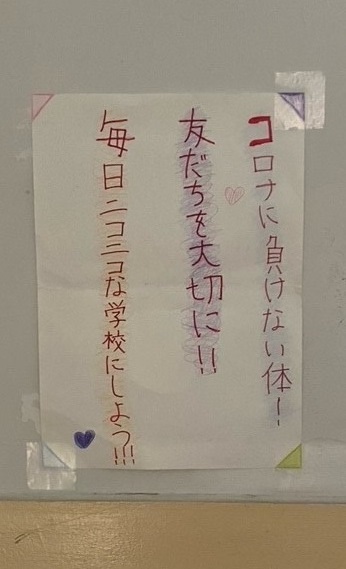 コロナに負けない体!
友だちを大切に!!
毎日ニコニコな学校にしよう!!!